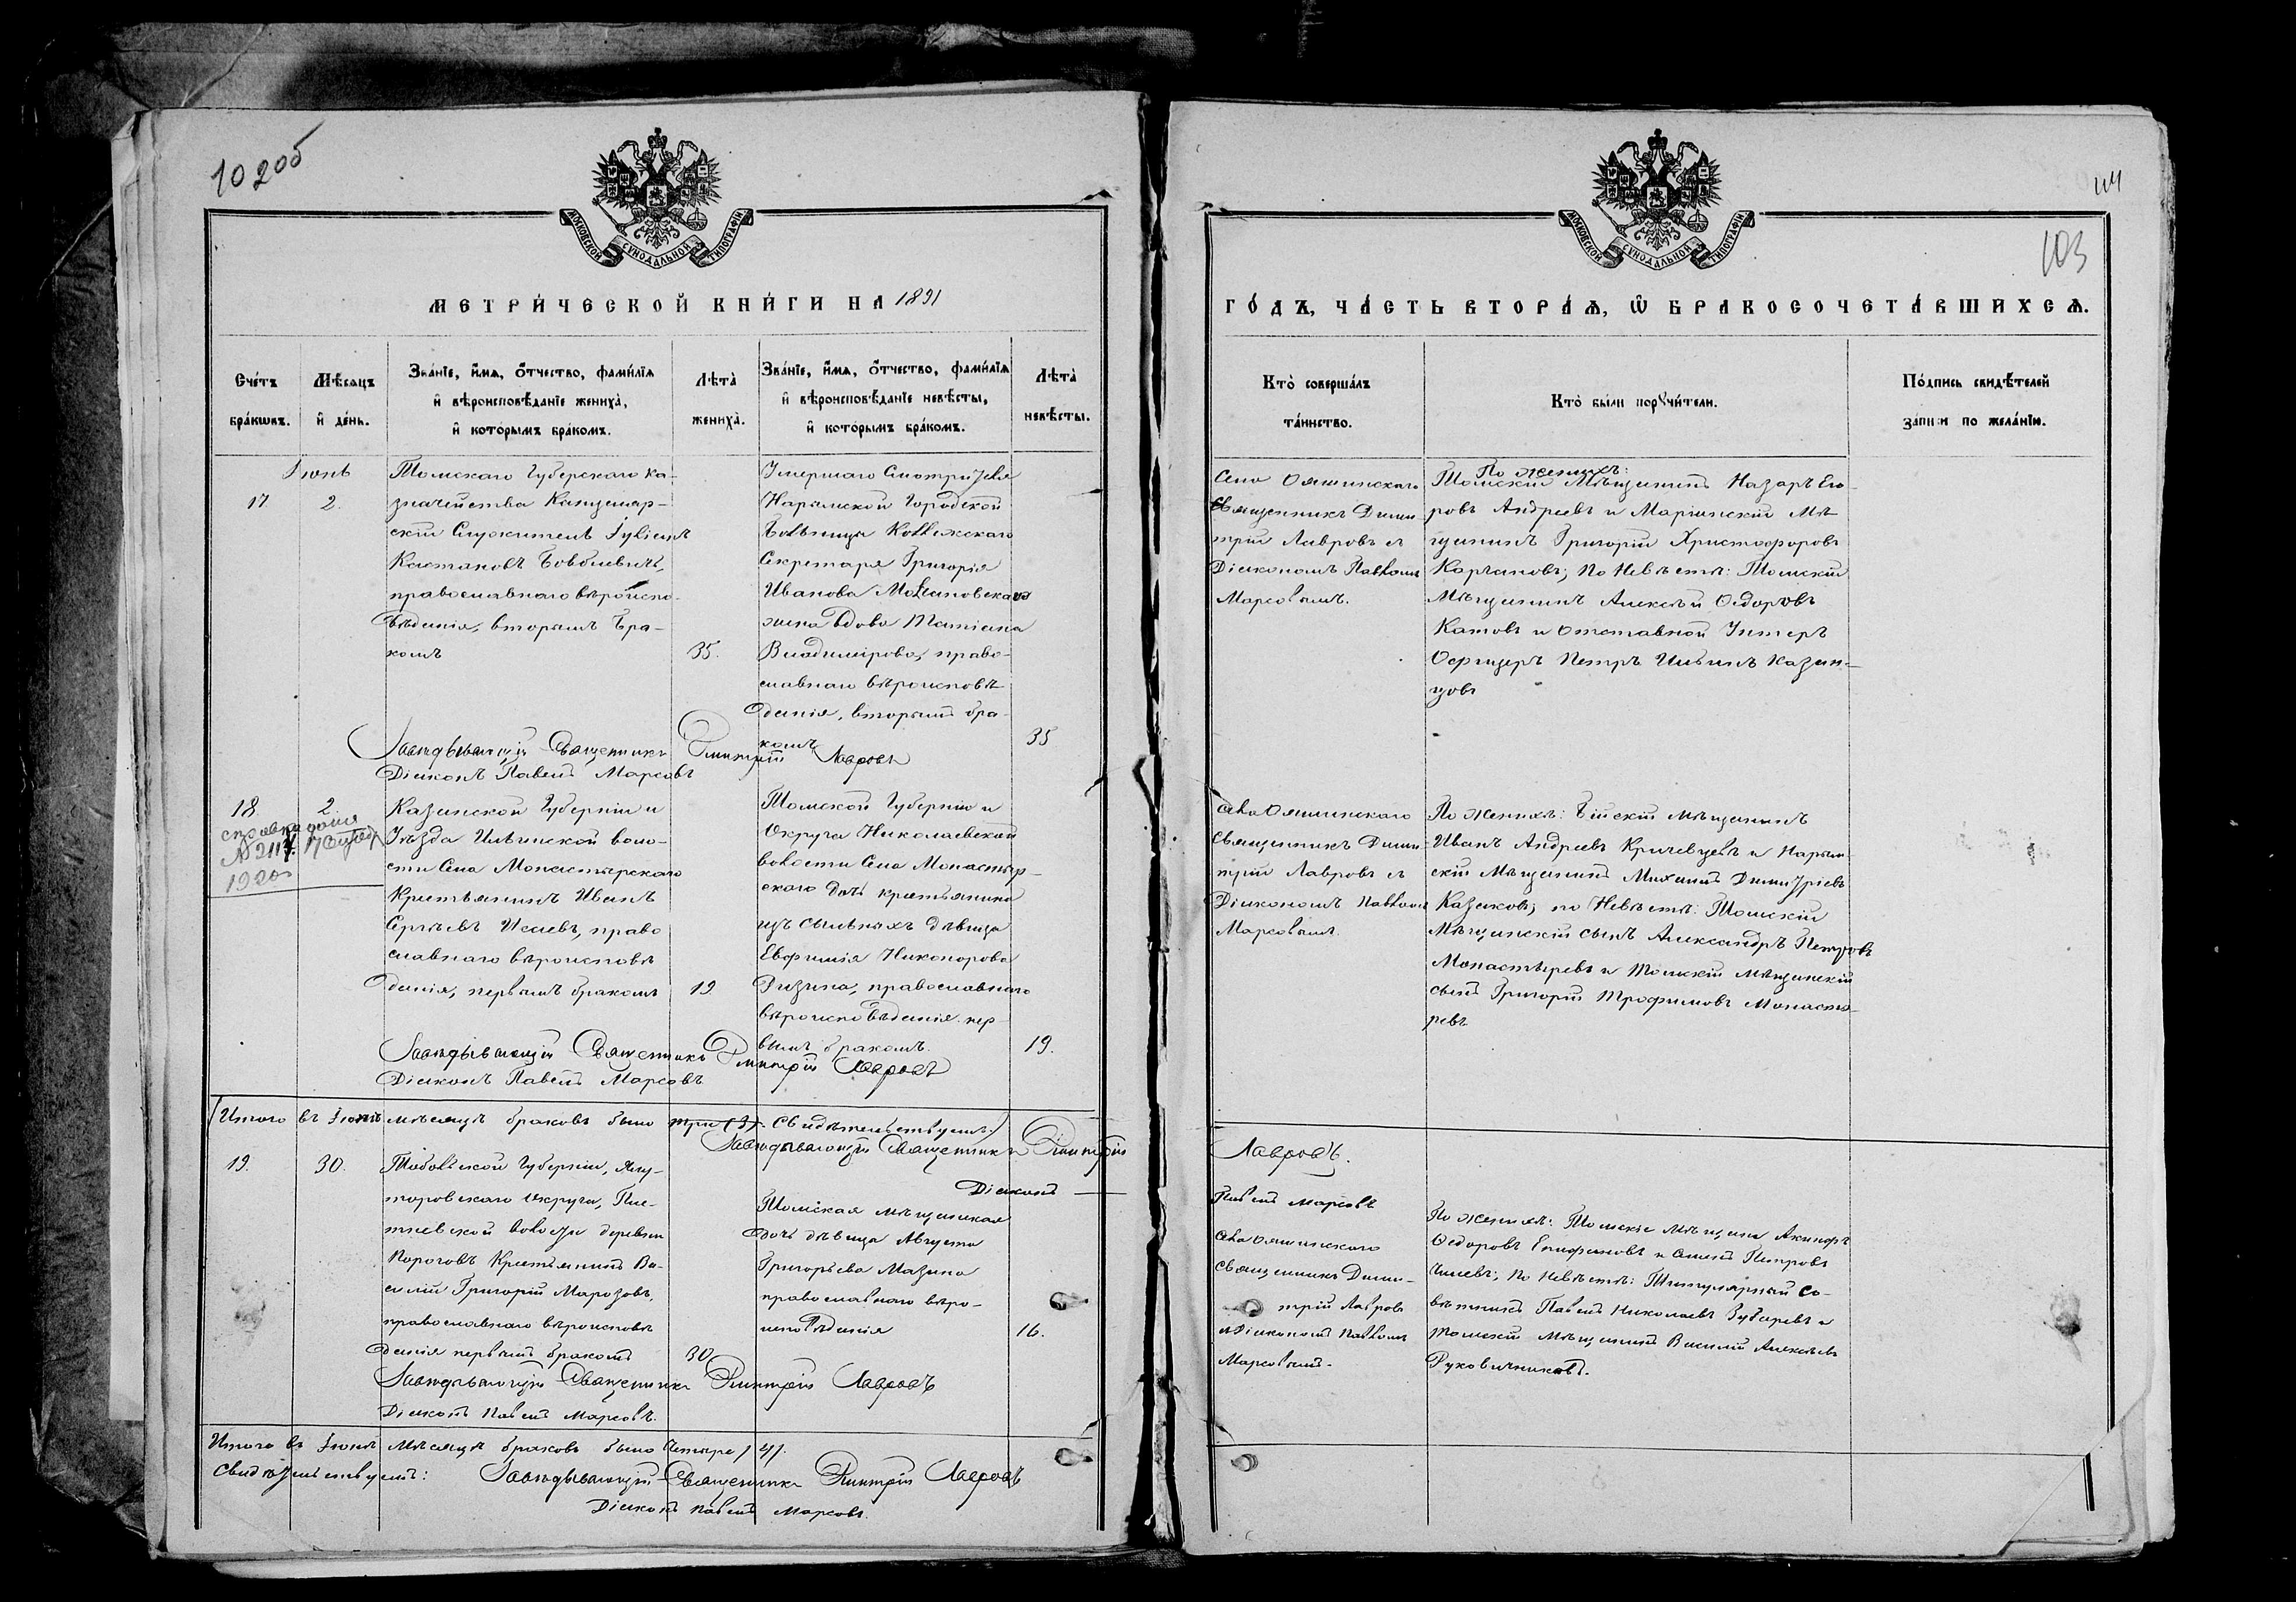 102об
МОСКОВСКОЙ СУНОДАЛЬНОЙ ТИПОГРАФІИ
МЕТРИ́ЧЕСКОЙ КНИ́ГИ НА 1891
Сче́тъ бра́кшвъ.
Мѣ́сяцъ и́ де́нь.
Зва́нїе, и҆́мя, о҆́тчество, фами́лїя
и҆ вѣроисповѣ́данїе жениха̀,
и҆ кото́рымъ бра́комъ.
Лѣ́та̀ жениха̀.
Зва́нїе, и҆́мя, о҆́тчество, фами́лїя
и҆ вѣроисповѣ́данїе невѣ́сты,
и҆ кото́рымъ бра́комъ.
Лѣ́та̀ невѣ́сты.
Іюнь
17. 2.
Томскаго Губерскаго Ка-
значейства Канцеляр-
скій Служитель
православнаго вѣроиспо-
вѣданія, вторымъ бра-
комъ
35.
Умершаго Смотрителя
Нарымской Городской
Больницы Коллежскаго
Секретаря Григорія
Иванова
жена вдова Татіана
Владимірова, право-
славнаго вѣроисповѣ
данія, вторымъ бра-
комъ
35
Завѣдывающій Священникъ Димитрій Лавровъ
Діаконъ Павелъ Марсовъ
18. 2.
справка дана
1920
Казанской Губерніи и
Уѣзда Ильинской воло-
сти Села Монастырскаго
Крестьянинъ Иванъ
Сергѣевъ Исаевъ, право
славнаго вѣроисповѣ
данія, первымъ бракомъ
19
Томской Губерніи и
Округа Николаевской
волости Села Монастыр-
скаго дочь крестьянина
изъ ссыльныхъ дѣвица
Евфимія Никонорова
Ризина, православнаго
вѣроисповѣданія, пер-
вымъ бракомъ.
19.
Завѣдывающій Священникъ Димитрій Лавровъ
Діаконъ Павелъ Марсовъ
Итого въ Іюнѣ мѣсяцѣ браковъ было три (3). Свидѣтельствуемъ:
Завѣдывающій Священникъ Димитрій
Діаконъ
19. 30.
Тобольской Губерніи, Ялу-
торовскаго Округа, Пле-
тневской волости деревни
Пороговъ Крестьянинъ Ва-
силій Григорій Марозовъ,
православнаго вѣроисповѣ
данія первымъ бракомъ
30
Томская мѣщанская
дочь дѣвица Августа
Григорьева Мазина
православнаго вѣро-
исповѣданія
16.
Завѣдывающій Священникъ Димитрій Лавровъ
Діаконъ Павелъ Марсовъ.
Итого въ Іюнѣ мѣсяцѣ браковъ было четыре /4/.
Свидѣтельствуемъ: Завѣдывающій Священникъ Димитрій Лавровъ
Діаконъ Павелъ Марсовъ.
103
МОСКОВСКОЙ СУНОДАЛЬНОЙ ТИПОГРАФІИ
ГО́ДЪ, ЧА́СТЬ ВТОРА́Ѧ, Ѽ БРАКОСОЧЕТА́ВШИХСѦ.
Кто̀ соверша́лъ та́инство.
Кто̀ бы́ли порꙋчи́тели.
По́дпись свидѣ́телей
за́писи по жела́нїю.
Села Ояшинскаго
Священникъ Дими
трій Лавровъ съ
Діакономъ Павломъ
Марсовымъ.
По женихѣ:
Томскій Мѣщанинъ Назаръ Его-
ровъ Андреевъ и Маріинскій Мѣ
щанинъ Григорій Христофоровъ
Карчановъ; По Невѣстѣ: Томскій
Мѣщанинъ Алексѣй Федоровъ
Катовъ и Отставной Унтеръ
Офицеръ Петръ Ильинъ Казан-
цовъ
Села Ояшинскаго
Священникъ Дими
трій Лавровъ съ
Діакономъ Павломъ
Марсовымъ.
По Женихѣ: Бійскій мѣщанинъ
Иванъ Андреевъ Кричевцевъ и Нарым-
скій Мѣщанинъ Михаилъ Димитріевъ
Казаковъ; по Невѣстѣ: Томскій
Мѣщанскій сынъ Александръ Петровъ
Монастыревъ и Томскій мѣщанскій
сынъ Григорій Трофимовъ Монасты-
ревъ
Лавровъ.
Павелъ Марсовъ
Села Ояшинскаго
Священникъ Дими-
трій Лавровъ
съ Діакономъ Павломъ
Марсовымъ.
По женихѣ: Томскіе Мѣщане Акинфъ
Федоровъ Епифановъ и Петровъ
По невѣстѣ: Титулярный Со-
вѣтникъ Павелъ Николаевъ Зубаревъ и
Томскій Мѣщанинъ Василій Алексѣевъ
Рукавишниковъ.